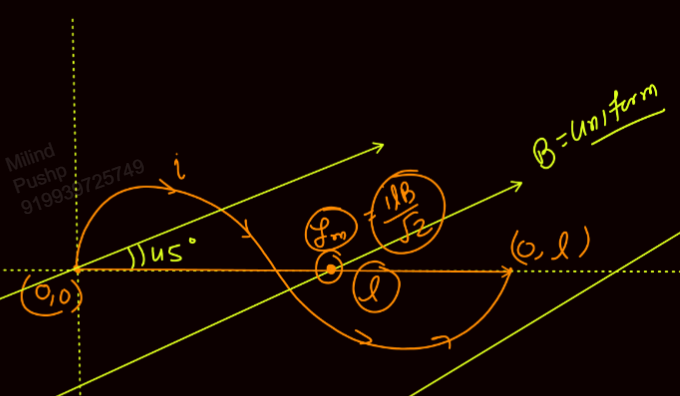 Milind
Pushp
919939725749
i
B = uniform
Fm = ilB/√2
(0, l)
45°
(0,0)
l